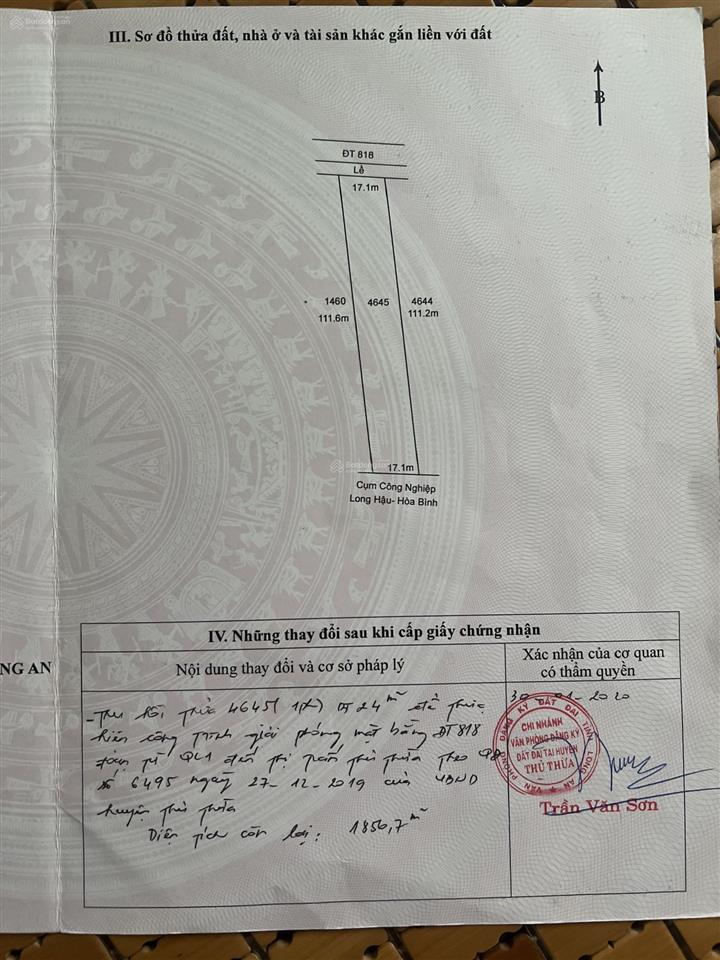 III. Sơ đồ thửa đất, nhà ở và tài sản khác gắn liền với đất
B
ĐT 818
Lề
17.1m
1460
4645
4644
111.6m
111.2m
17.1m
Cụm Công Nghiệp
Long Hậu- Hòa Bình
Batdongsan
NG AN
IV. Những thay đổi sau khi cấp giấy chứng nhận
Nội dung thay đổi và cơ sở pháp lý
Xác nhận của cơ quan
có thẩm quyền
-Thu hồi thửa 4645 (1 phần) DT 24 m² để thực
hiện công trình giải phóng mặt bằng ĐT 818
đoạn từ QL1 đến thị trấn Thủ Thừa theo QĐ
số 6495 ngày 27-12-2019 của UBND
huyện Thủ Thừa
Diện tích còn lại: 1856,7 m²
30-01-2020
VĂN PHÒNG ĐĂNG KÝ ĐẤT ĐAI TỈNH LONG AN
CHI NHÁNH
VĂN PHÒNG ĐĂNG KÝ
ĐẤT ĐAI TẠI HUYỆN
THỦ THỪA
Trần Văn Sơn